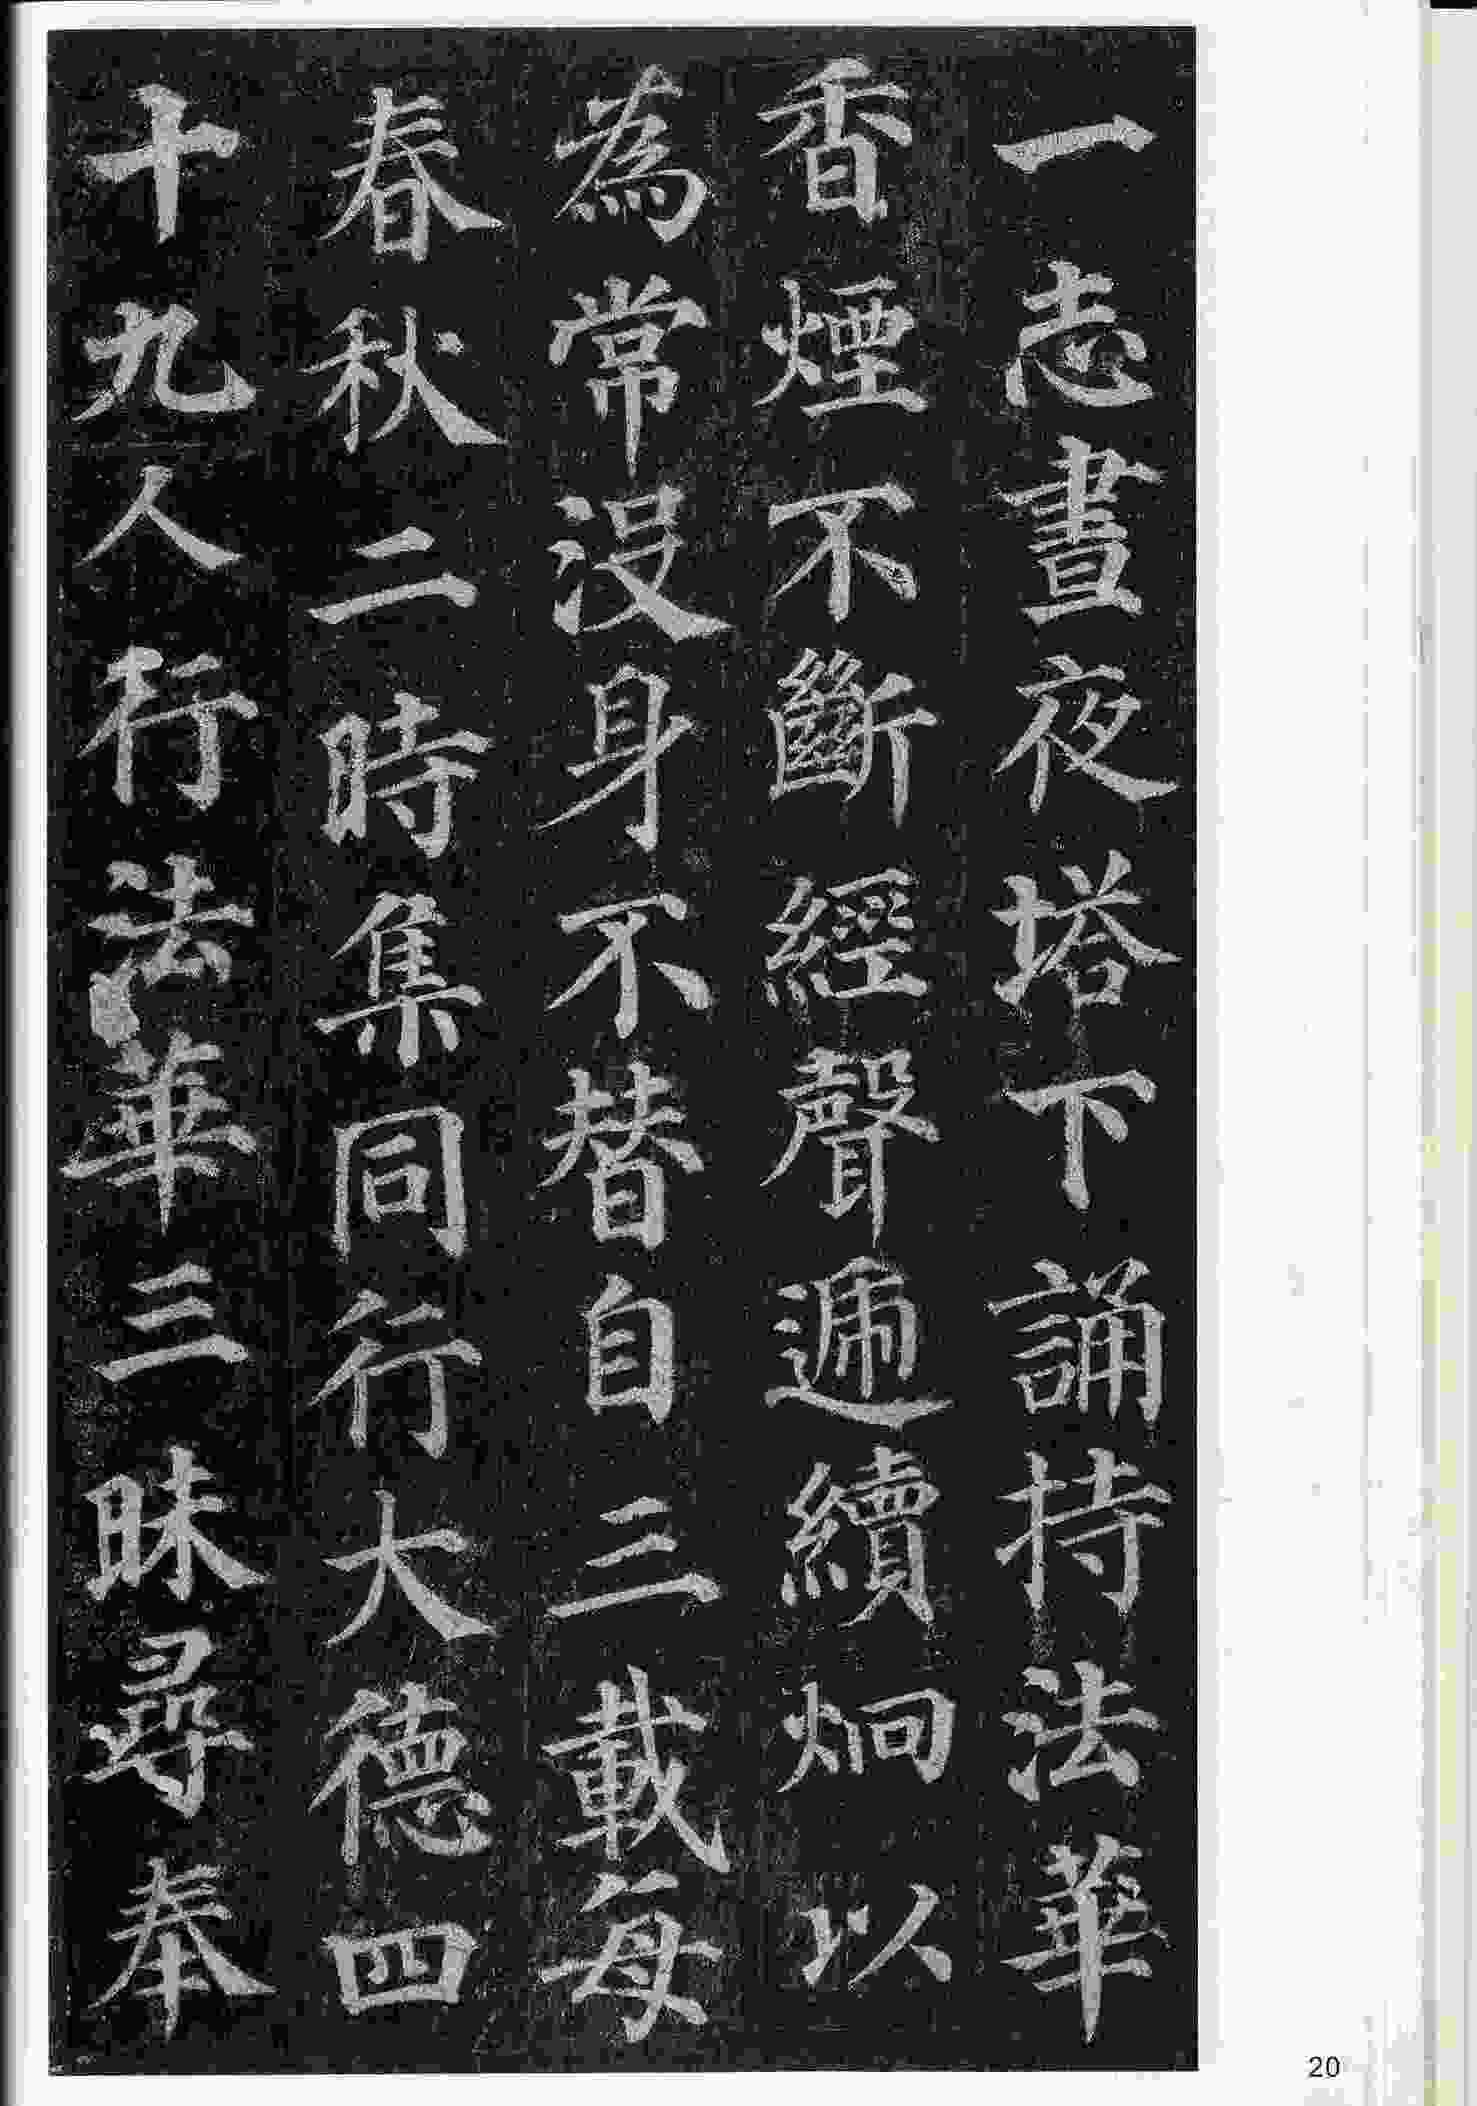 一志晝夜塔下誦持法華
香煙不斷經聲遞續炯以
為常沒身不替自三載每
春秋二時集同行大德四
十九人行法華三昧尋奉
20